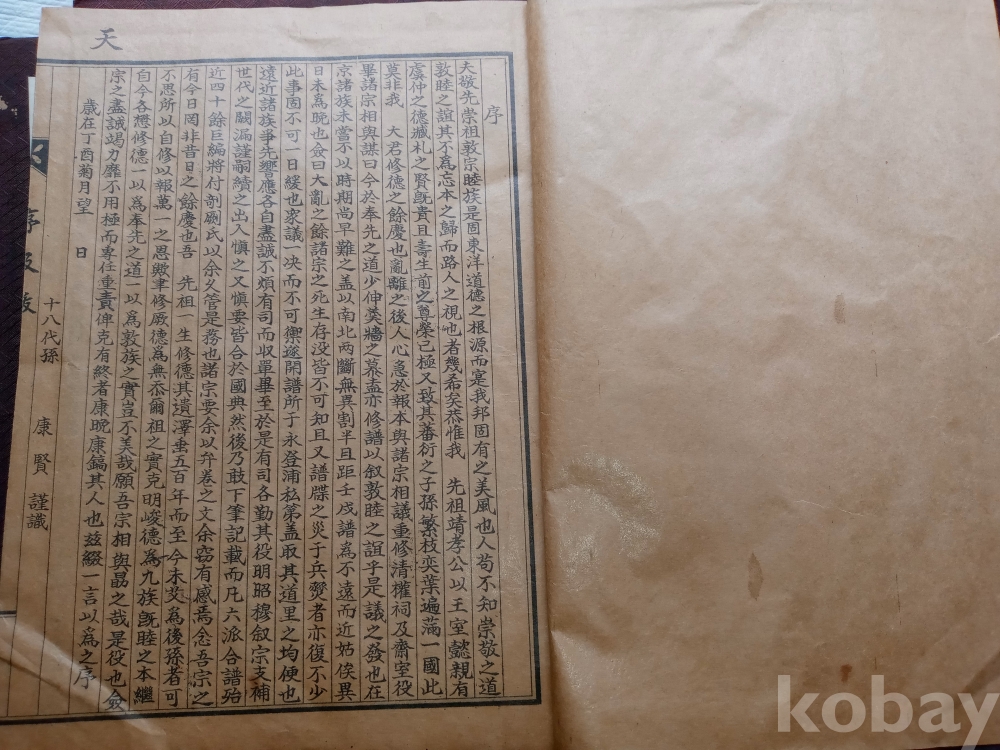 天
序
夫敬先崇祖敦宗睦族是固東洋道德之根源而寔我邦固有之美風也人苟不知崇敬之道
敦睦之誼其不爲忘本之歸而路人之視也者幾希矣恭惟我 先祖靖孝公以王室懿親有
虞仲之德臧札之賢旣貴且壽生前之尊榮已極又致其蕃衍之子孫繁枝奕葉遍滿一國此
莫非我 大君修德之餘慶也亂離之後人心急於報本與諸宗相議重修清權祠及齋室役
畢諸宗相與謀曰今於奉先之道少伸羹墻之慕盍亦修譜以叙敦睦之誼乎是議之發也在
京諸族未嘗不以時期尚早難之盖以南北兩斷無異割半且距壬戌譜為不遠而近姑俟異
日未爲晩也僉曰大亂之餘諸宗之死生存没皆不可知且又譜牒之災于兵燹者亦復不少
此事固不可一日緩也衆議一决而不可禦遂開譜所于永登浦私第盖取其道里之均便也
遠近諸族爭先響應各自盡誠不煩有司而收單畢至於是有司各勤其役明昭穆叙宗支補
世代之闕漏謹嗣續之出入愼之又愼要皆合於國典然後乃敢下筆記載而凡六派合譜殆
近四十餘巨編將付剞劂氏以余乂管是務也諸宗要余以弁卷之文余窃有感焉念吾宗之
有今日罔非昔日之餘慶也吾 先祖一生修德其遺澤垂五百年而至今未艾為後孫者可
不思所以自修以報萬一之恩歟聿修厥德為無忝爾祖之實克明峻德為九族旣睦之本繼
自今各懋修德一以爲奉先之道一以爲敦族之實豈不美哉願吾宗相與勗之哉是役也僉
宗之盡誠竭力靡不用極而專任重責俾克有終者康晩康鎬其人也玆綴一言以爲之序
歲在丁酉菊月望 日
十八代孫 康賢 謹識
序
kobay